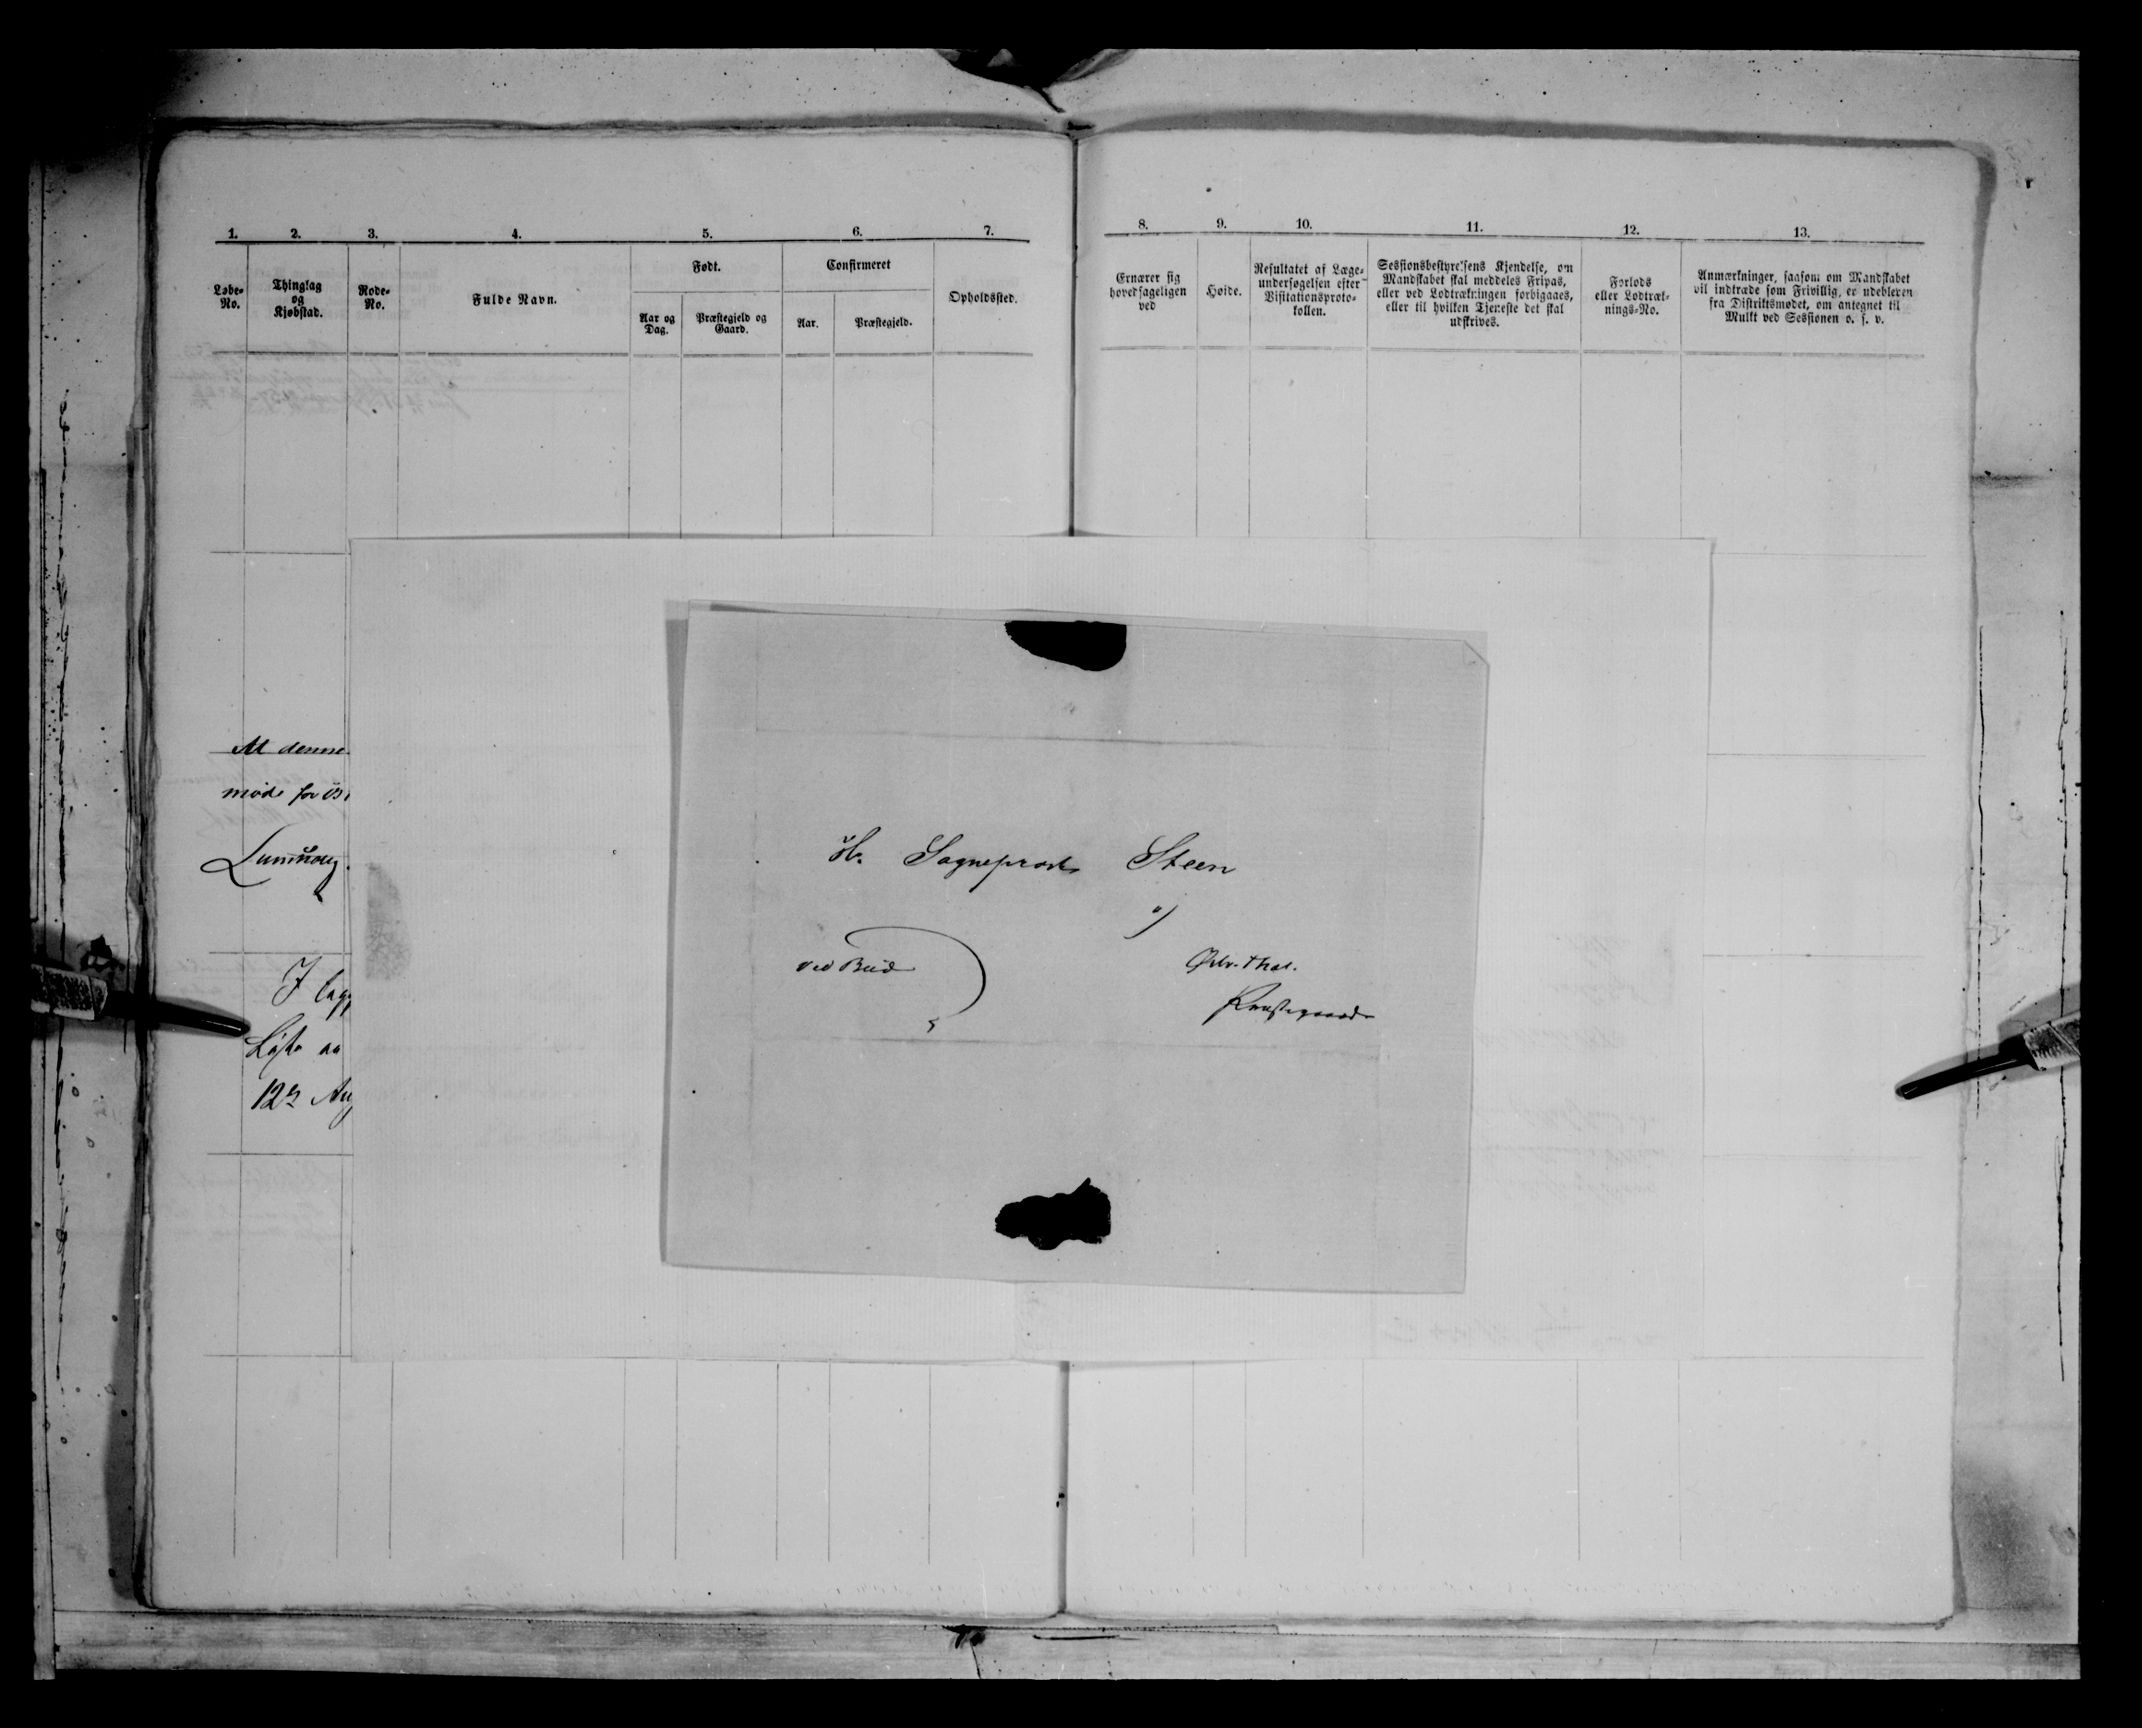 1. 2. 3. 4. 5. 6. 7.
Løbe-
No.
Thinglag
og
Kjøbstad.
Rode-
No.
Fulde Navn.
Født.
Aar og
Dag.
Præstegjeld og
Gaard.
Confirmeret
Aar.
Præstegjeld.
Opholdssted.
8. 9. 10. 11. 12. 13.
Ernærer sig
hovedsageligen
ved
Høide.
Resultatet af Læge-
undersøgelsen efter
Visitationsproto-
kollen.
Sessionsbestyrelsens Kjendelse, om
Mandskabet skal meddeles Fripas,
eller ved Lodtrækningen forbigaaes,
eller til hvilken Tjeneste det skal
udskrives.
Forlods
eller Lodtræk-
nings-No.
Anmærkninger, saasom om Mandskabet
vil indtræde som Frivillig, er udebleven
fra Distriktsmødet, om antegnet til
Mulkt ved Sessionen o. s. v.
denne
møde for
I
12
Hr. Sogneprest Steen
ved Bud
Præstegaard